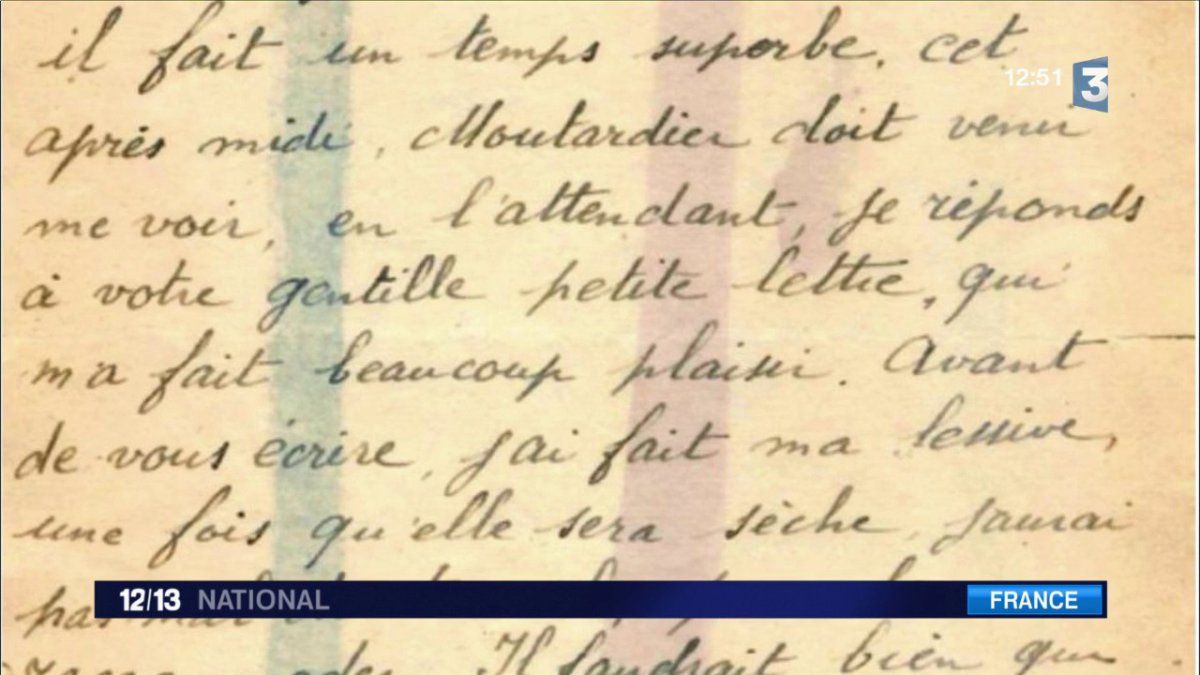 il fait un temps superbe. cet
12:51 3
après midi, Moutardier doit venir
me voir, en l'attendant, je réponds
à votre gentille petite lettre, qui
m'a fait beaucoup plaisir. Avant
de vous écrire, j'ai fait ma lessive,
une fois qu'elle sera sèche, j'aurai
pas mal
12/13 NATIONAL FRANCE
Il faudrait bien que